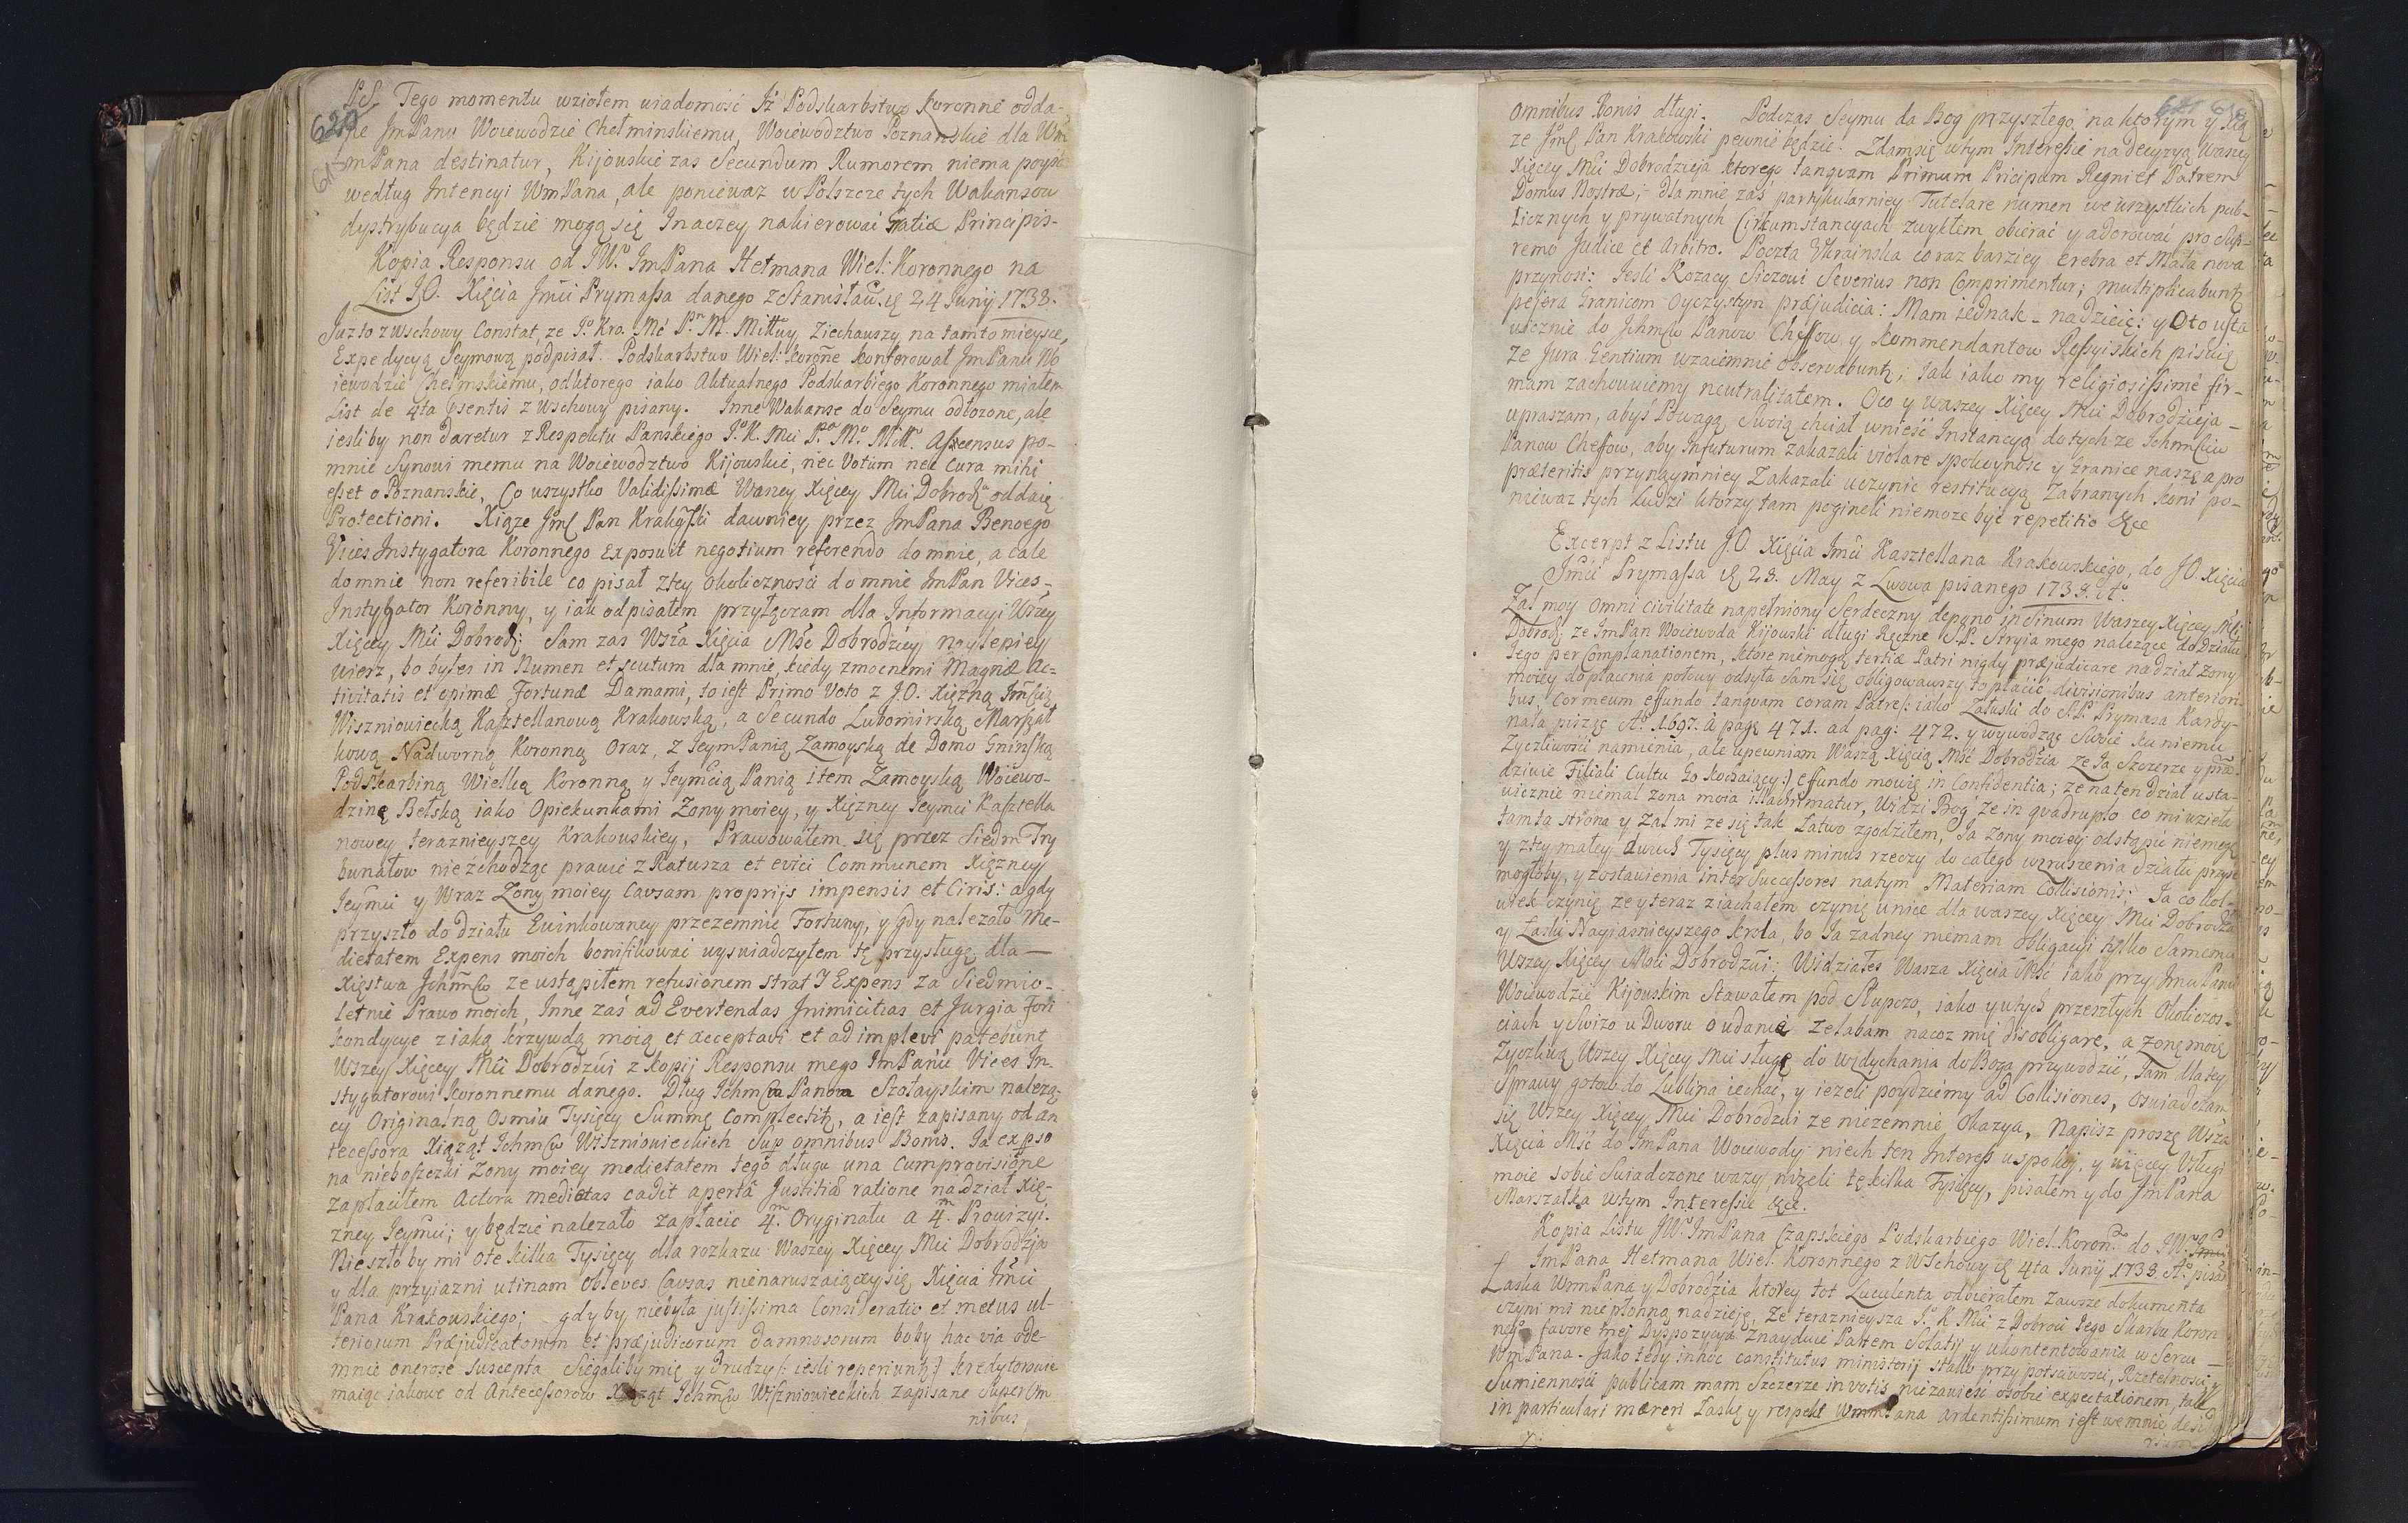 620
PS. Tego momentu wziołem wiadomość Iż Podskarbstwo Koronne odda-
ne JmPanu Woiewodzie Chełminskiemu, Woiewodztwo Poznanskie dla Wm
mPana destinatur, Kijowskie zas Secundum Rumorem niema poysc
według Intencyi WmPana, ale poniewaz w Polszcze tych Wakansow
dystrybucya będzie mogą się Inaczey nakierować Gratiæ Principis-
Kopia Responsu od JW. JmPana Hetmana Wiel: Koronnego na
List J.O. Xięcia Jmci Prymassa danego z Stanisław. 24 Junij 1738.
Juz to z Wschowy Constat, ze J. Kro. Mć P. N. Miłłwy Ziechawszy na tamto mieysce,
Expedycyą Seymową podpisał. Podskarbstwo Wiel: Koronne konferował JmPanu Wo
iewodzie Chełmskiemu, od ktorego iako Aktualnego Podskarbiego Koronnego miałem
List de 4ta psentis z Wschowy pisany. Inne Wakanse do Seymu odłozone, ale
iesliby non daretur z Respektu Panskiego J. K. Mci P. M. Miłł. Ascensus po-
mnie Synowi memu na Woiewodztwo Kijowskie, nec Votum nec Cura mihi
esset o Poznanskie, Co wszystko Validissimæ Waszey Xięcey Mci Dobrodz. oddaię
Protectioni. Xiąze Jmć Pan Krakowski dawniey przez JmPana Benoego
Vices Instygatora Koronnego Exposuit negotium referendo do mnie, a cale
do mnie non referibile co pisał z tey okoliczności do mnie JmPan Vices-
Instygator Koronny, y iak odpisałem przyłączam dla Informacyi Wszey
Xięcey Mci Dobrodz: Sam zas Wsza Xięcia Mść Dobrodziey naylepiey
wiesz, bo byłes in Numen et scutum dla mnie, kiedy zmocnemi Magnæ Ac-
tivitatis et opimæ Fortunæ Damami, to iest Primo Voto z J.O. Xięzną Jmcią
Wiszniowiecką Kasztellanową Krakowską, a Secundo Lubomirską Marszał
kową Nadworną Koronną oraz, z JeymPanią Zamoyską de Domo Gninską
Podskarbiną Wielką Koronną y Jeymcią Panią item Zamoyską Woiewo-
dziną Bełską iako Opiekunkami Zony moiey, y Xięzney Jeymci Kasztella
nowey teraznieyszey Krakowskiey, Prawowałem się przez Siedm Try
bunałow nie zchodząc prawie z Ratusza et evici Communem Xięzney
Jeymci y Wraz Zony moiey Causam proprijs impensis et Curis: a gdy
przyszło do działu Ewinkowaney przezemnie Fortuny, y gdy nalezało Me-
dietatem Expens moich bonifikować wyswiadczyłem tę przysługę dla-
Xięstwa Jchmćw ze ustąpiłem refusionem strat I Expens za Siedmio-
letnie Prawo moich, Inne zaś ad Evertendas Inimicitias et Jurgia Fori
kondycye z iaką krzywdą moią et acceptavi et adimplevi patebunt
Wszey Xięcey Mci Dobrodzwi z Kopij Responsu mego JmPanu Vices In-
stygatorowi Koronnemu danego. Dług Jchmćw Panow Szołayskim nalezą-
cy Originalną Osmiu Tysięcy Summę complectitz, a iest zapisany od an
tecessora Xiąząt Jchmćw Wiszniowieckich Sup omnibus Bonis. Ja ex pso
na nieboszczki Zony moiey medietatem tego długu una cum provisione
zapłaciłem Actora medietas cadit aperta Justitia ratione na dział Xię-
zney Jeymci; y będzie nalezało zapłacic 4. Oryginału a 4. Prowizyi.
Nieszło by mi o te kilka Tysięcy dla rozkazu Waszey Xięcey Mci Dobrodzja
y dla przyiazni utinam Obleves Causas nienaruszaiączy się, Xięcia Jmci
Pana Krakowskiego; gdyby niebyła justissima Consideratio et metus ul-
teriorum Præjudicatorum et præjudiciorum damnosorum boby hac via ode-
mnie onerose suscepta Sięgaliby mię y drudzy /: iesli reperiuntz:/ kredytorowie
maiąc iakowe od Antecessorow Xiąząt Jchmćw Wiszniowieckich zapisane Super Om
nibus
omnibus Bonis długi. Podczas Seymu da Bog przyszłego, na ktorym y Xią
ze Jmć Pan Krakowski pewnie będzie. Zdam się wtym Interessie na decyzyą Waszey
Xięcey Mci Dobrodzieja ktorego tanquam Primum Pricipum Regni et Patrem
Domus Nostræ; dla mnie zaś partykularniey Tutelare numen we wszystkich pub-
licznych y prywatnych Cirkumstancyach zwykłem obierać y adorować pro Sup-
remo Judice et Arbitro. Poczta Ukrainska coraz barziey crebra et Mala nova
przynosi: Jesli Kozacy Siczowi Severius non Comprimentur; multiplicabuntz
pejora Granicom Oyczystym præjudicia: Mam iednak nadzieię: y Oto usta
wicznie do Jchmćw Panow Cheffow y Kommendantow Rossyiskich piszię
ze Jura Gentium wzaiemnie observabuntz; iak iako my religiosissime fir-
mam zachowuiemy neutralitatem. Oco y Waszey Xięcey Mci Dobrodzieja-
upraszam, abyś Powagą Swoią chciał wnieść Instancyą do tych ze Jchmćiow
Panow Cheffow, aby Infuturum zakazali violare spokoyność y Granice nasze a pro
præteritis przynaymniey Zakazali uczynic restitucyą Zabranych koni po-
niewaz tych Ludzi ktorzy tam pogineli niemoze być repetitio &ce
Excerpt z Listu J.O. Xięcia Jmci Kasztellana Krakowskiego, do J.O. Xięcia
Jmci Prymassa 28. May z Lwowa pisanego 1738.
Zal moy omni civilitate napełniony Serdeczny depono in Sinum Waszey Xięcey Mci
Dobrodz: ze JmPan Woiewoda Kijowski długi Ręczne S.P. Stryia mego nalezące do Działu
Jego per Complanationem, ktore niemogą tertiæ Patri nigdy præjudicare na dział Zony
moiey do płacenia połowy odsyła Sam się obligowawszy to płacić divisionibus anteriori-
bus, Cor meum effundo tanquam coram Patre /: iako Załuski do S.P. Prymasa Kardy-
nała piszę A. 1697. a pag. 471. ad pag: 472. y wywodząc Swoie ku niemu
Zyczliwości namienia, ale upewniam Waszą Xięcią Mść Dobrodzia ze Ja Szczerze y praw-
dziwie Filiali Cultu Go kochaiący :/ effundo mowię in Confidentia; ze na ten dział usta-
wicznie niemal zona moia illachrimatur, Widzi Bog, ze in quadruplo co mi wzieła
tamta strona y Zal mi ze się tak Łatwo zgodziłem, Ja Zony moiey odstąpić niemogę
y z tey małey dwuch Tysięcy plus minus rzeczy do całego wzruszenia działu przyść
mogłoby, y zostawienia inter Successores natym Materiam Collisionis; Ja co kol-
wiek czynię ze y teraz ziachałem czynię unice dla waszey Xięcey Mci Dobrodza
y Łaski Nayiasnieyszego krola, bo Ja zadney niemam Obligacyi tylko Samemu
Wszey Xięcey Mci Dobrodzwi; Widziałes Wasza Xięcia Mść iako przy JmuPanu
Woiewodzie Kijowskim Stawałem pod Słupczo, iako y wtych przeszłych Okoliczos-
ciach y Swizo u Dworu o udanie zelabam nacoz mię disobligare, a zonę moię
Zyczliwą Wszey Xięcey Mci sługę do wzdychania do Boga przywodzić, Jam dla tey
Sprawy gotow do Lublina iechać, y iezeli poydziemy ad Collisiones, oswiadczam
się Wszey Xięcey Mci Dobrodzwi ze niezemnie Okazya, Napisz proszę Wsza
Xięcia Mść do JmPana Woiewody niech ten Interess uspokoj, y więcey Usługi
moie sobie Swiadczone wazy nizeli tę kilka Tysięcy, pisałem y do JmPana
Marszałka wtym Interessie &ce.
Kopia Listu JW. JmPana Czapskiego Podskarbiego Wiel. Koron. do JW.
JmPana Hetmana Wiel. Koronnego z Wschowy 4ta Junij 1738. A. pisan
Łaska WmmPana y Dobrodzia ktorey tot Luculenta odbierałem Zawsze dokumenta
czyni mi niepłonną nadzieję, Ze teraznieysza J. K. Mci z Dobroci Jego Skarbu Koron
nego favore mej Dyspozycya Znayduie Partem Solatij y ukontentowania w Sercu-
WmPana. Jako tedy inhoc constitutus ministerij stallo przy poczciwosci, Rzetelnosci y
Sumiennosci publicam mam Szczerze in votis niezawiesc osobie expectationem, tak
in particulari mæreri Łaskę y respekt WmmPana ardentissimum iest wemnie desid